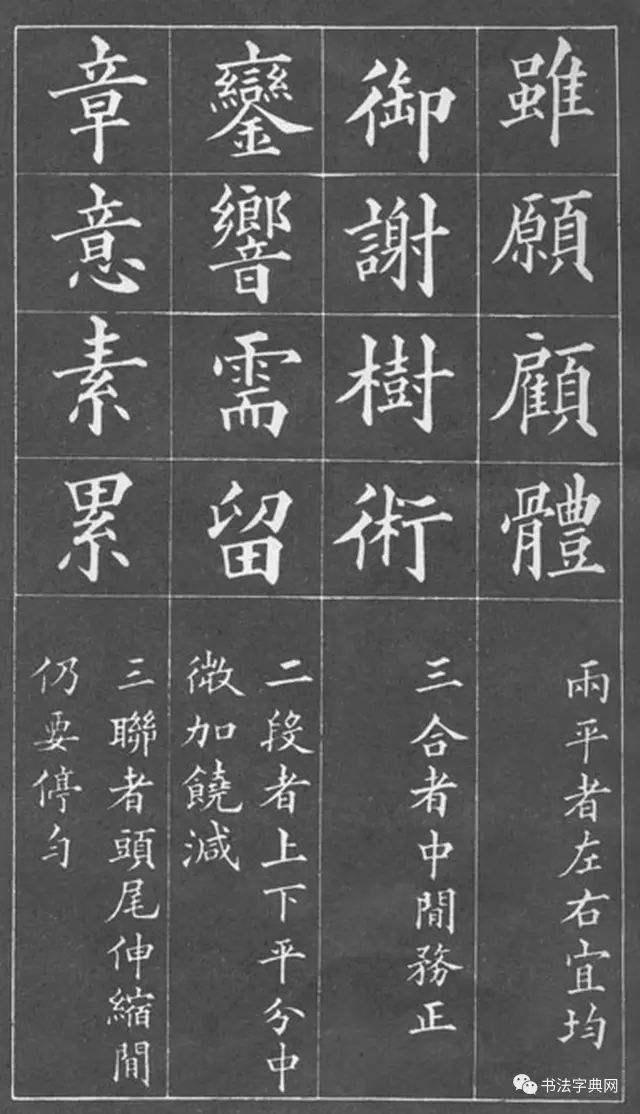 雖願顧體
兩平者左右宜均
御謝樹術
三合者中間務正
鑾響需留
二段者上下平分中
微加饒減
章意素累
三聯者頭尾伸縮間
仍要停勻
书法字典网